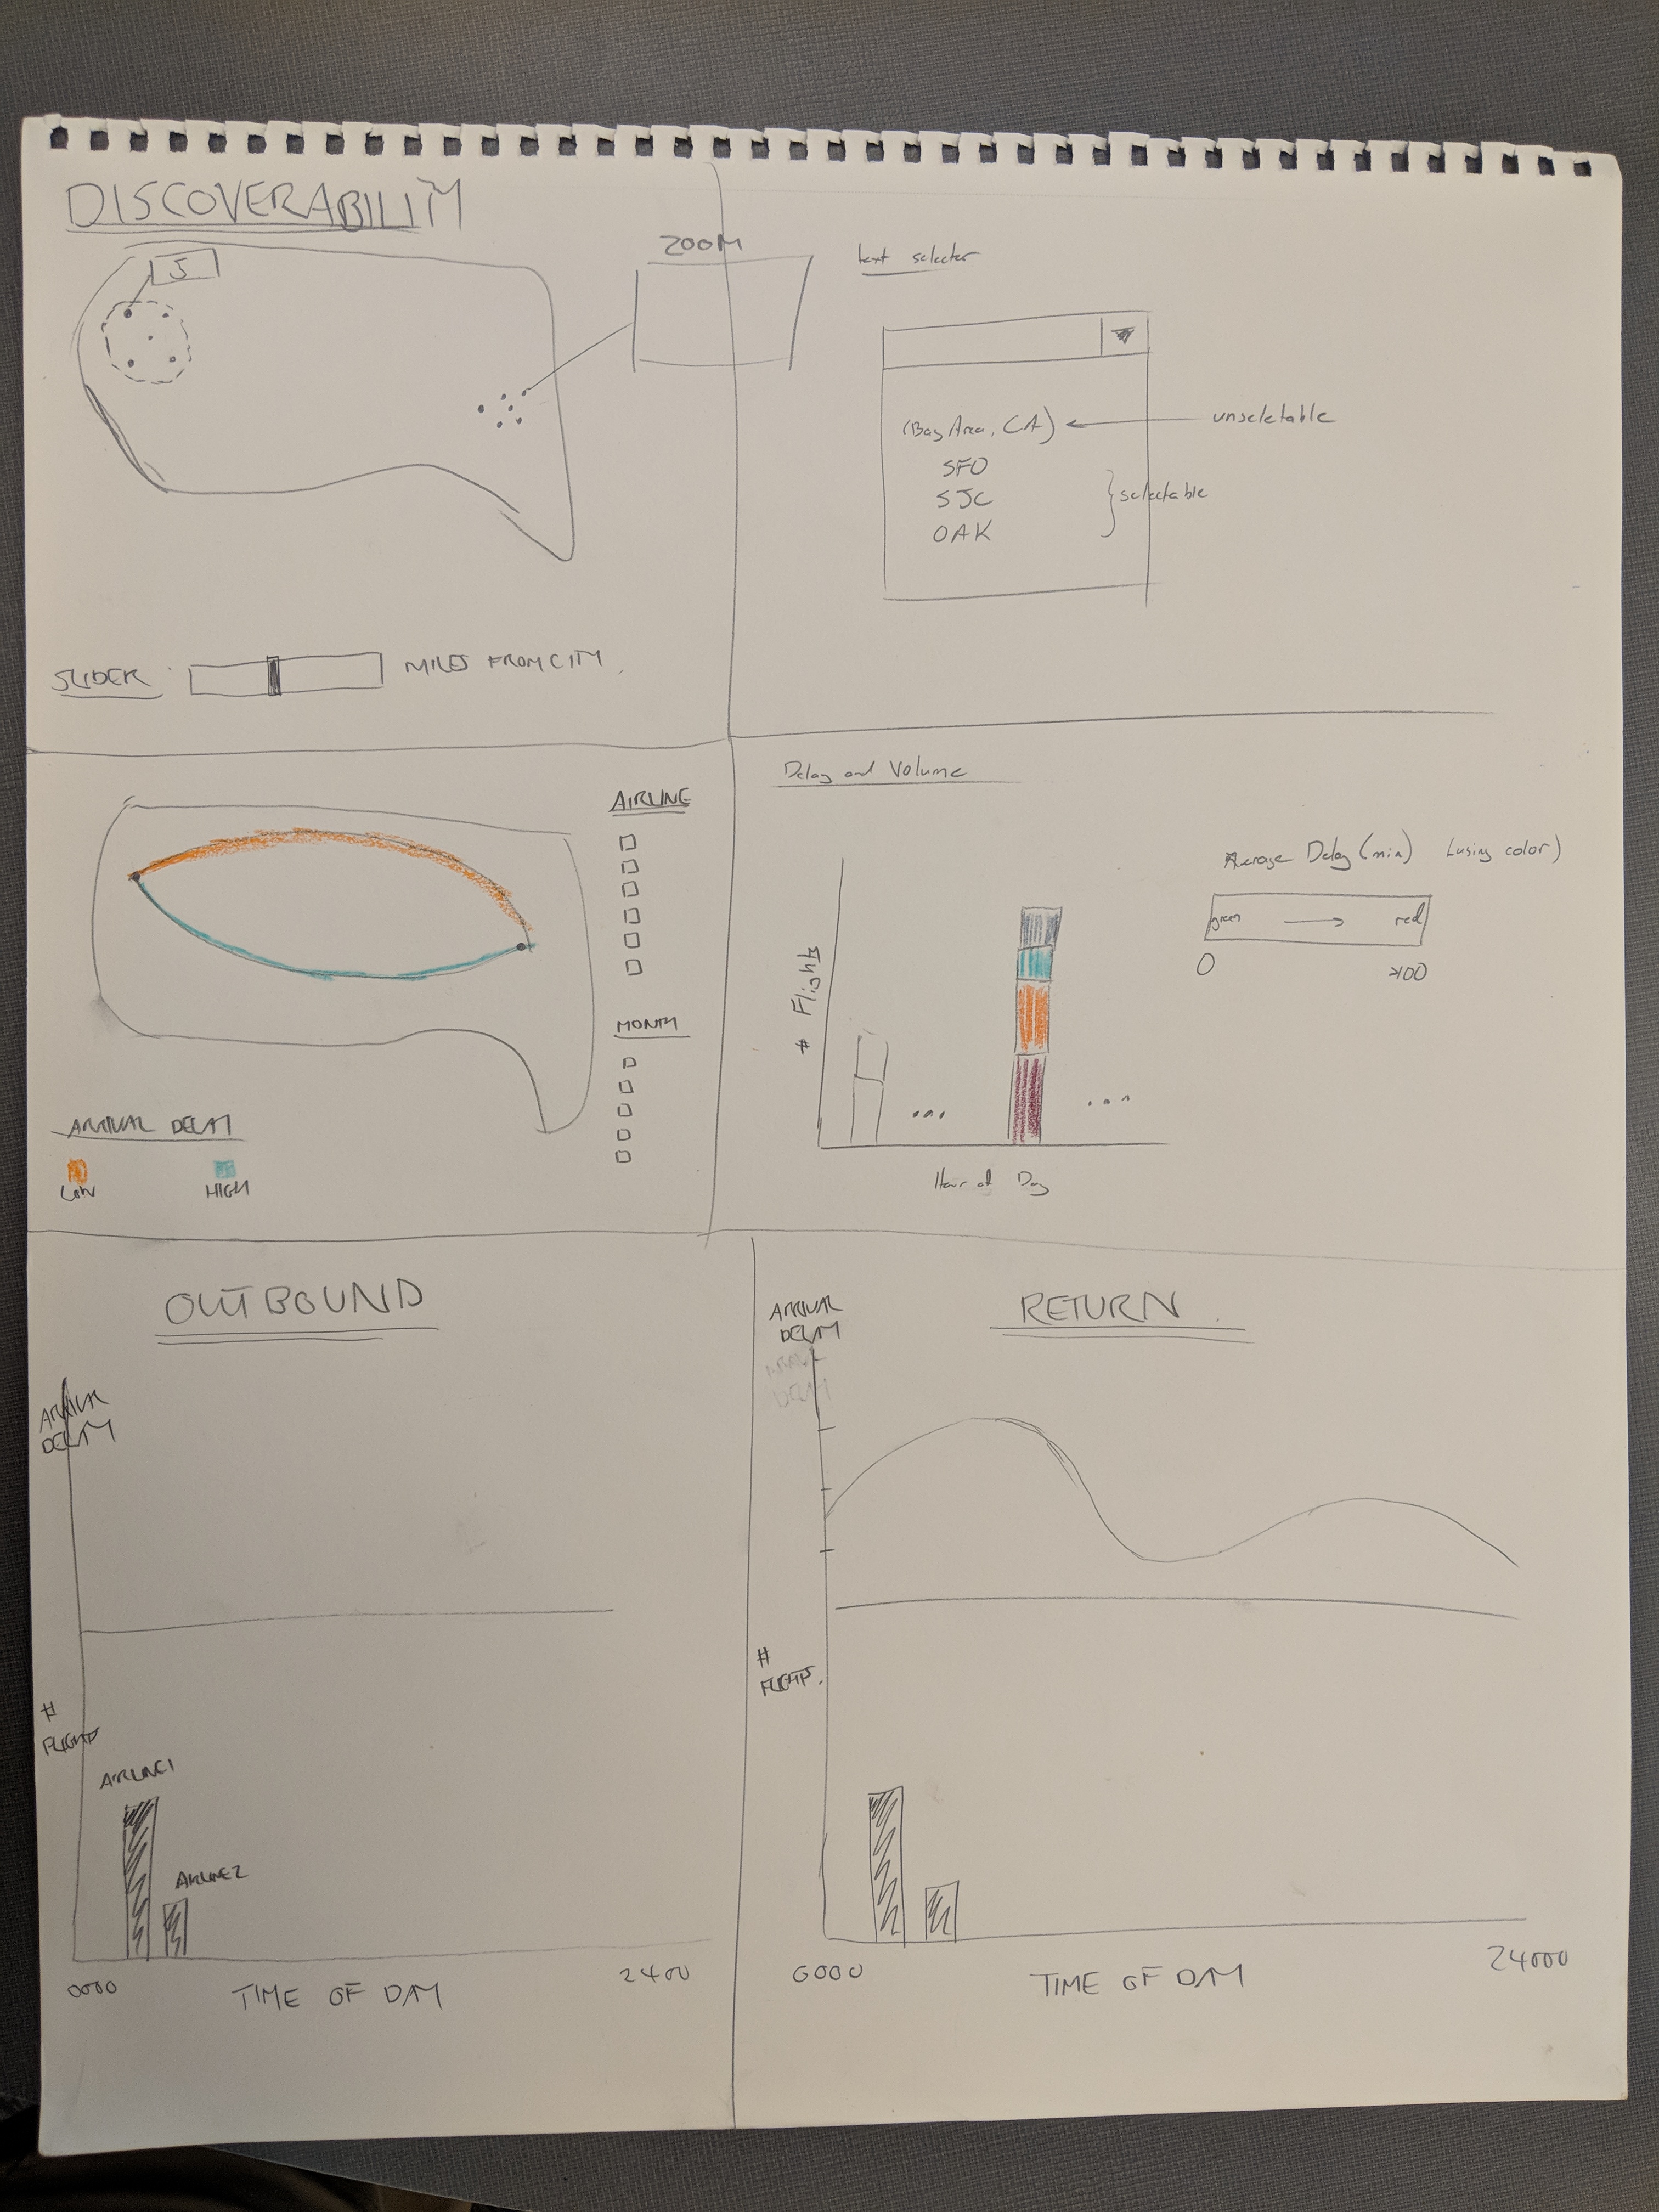 DISCOVERABILITY
5
ZOOM
SLIDER
MILES FROM CITY
text selector
(Bay Area, CA)
unseletable
SFO
SJC
OAK
selectable
AIRLINE
MONTH
ARRIVAL DELAY
LOW
HIGH
Delay and Volume
# Flights
...
...
Hour of Day
Average Delay (min) (using color)
green → red
0
>100
OUTBOUND
ARRIVAL
DELAY
#
FLIGHTS
AIRLINE1
AIRLINE2
0000
TIME OF DAY
2400
RETURN
ARRIVAL
DELAY
ARRIVAL
DELAY
#
FLIGHTS.
0000
TIME OF DAY
24000